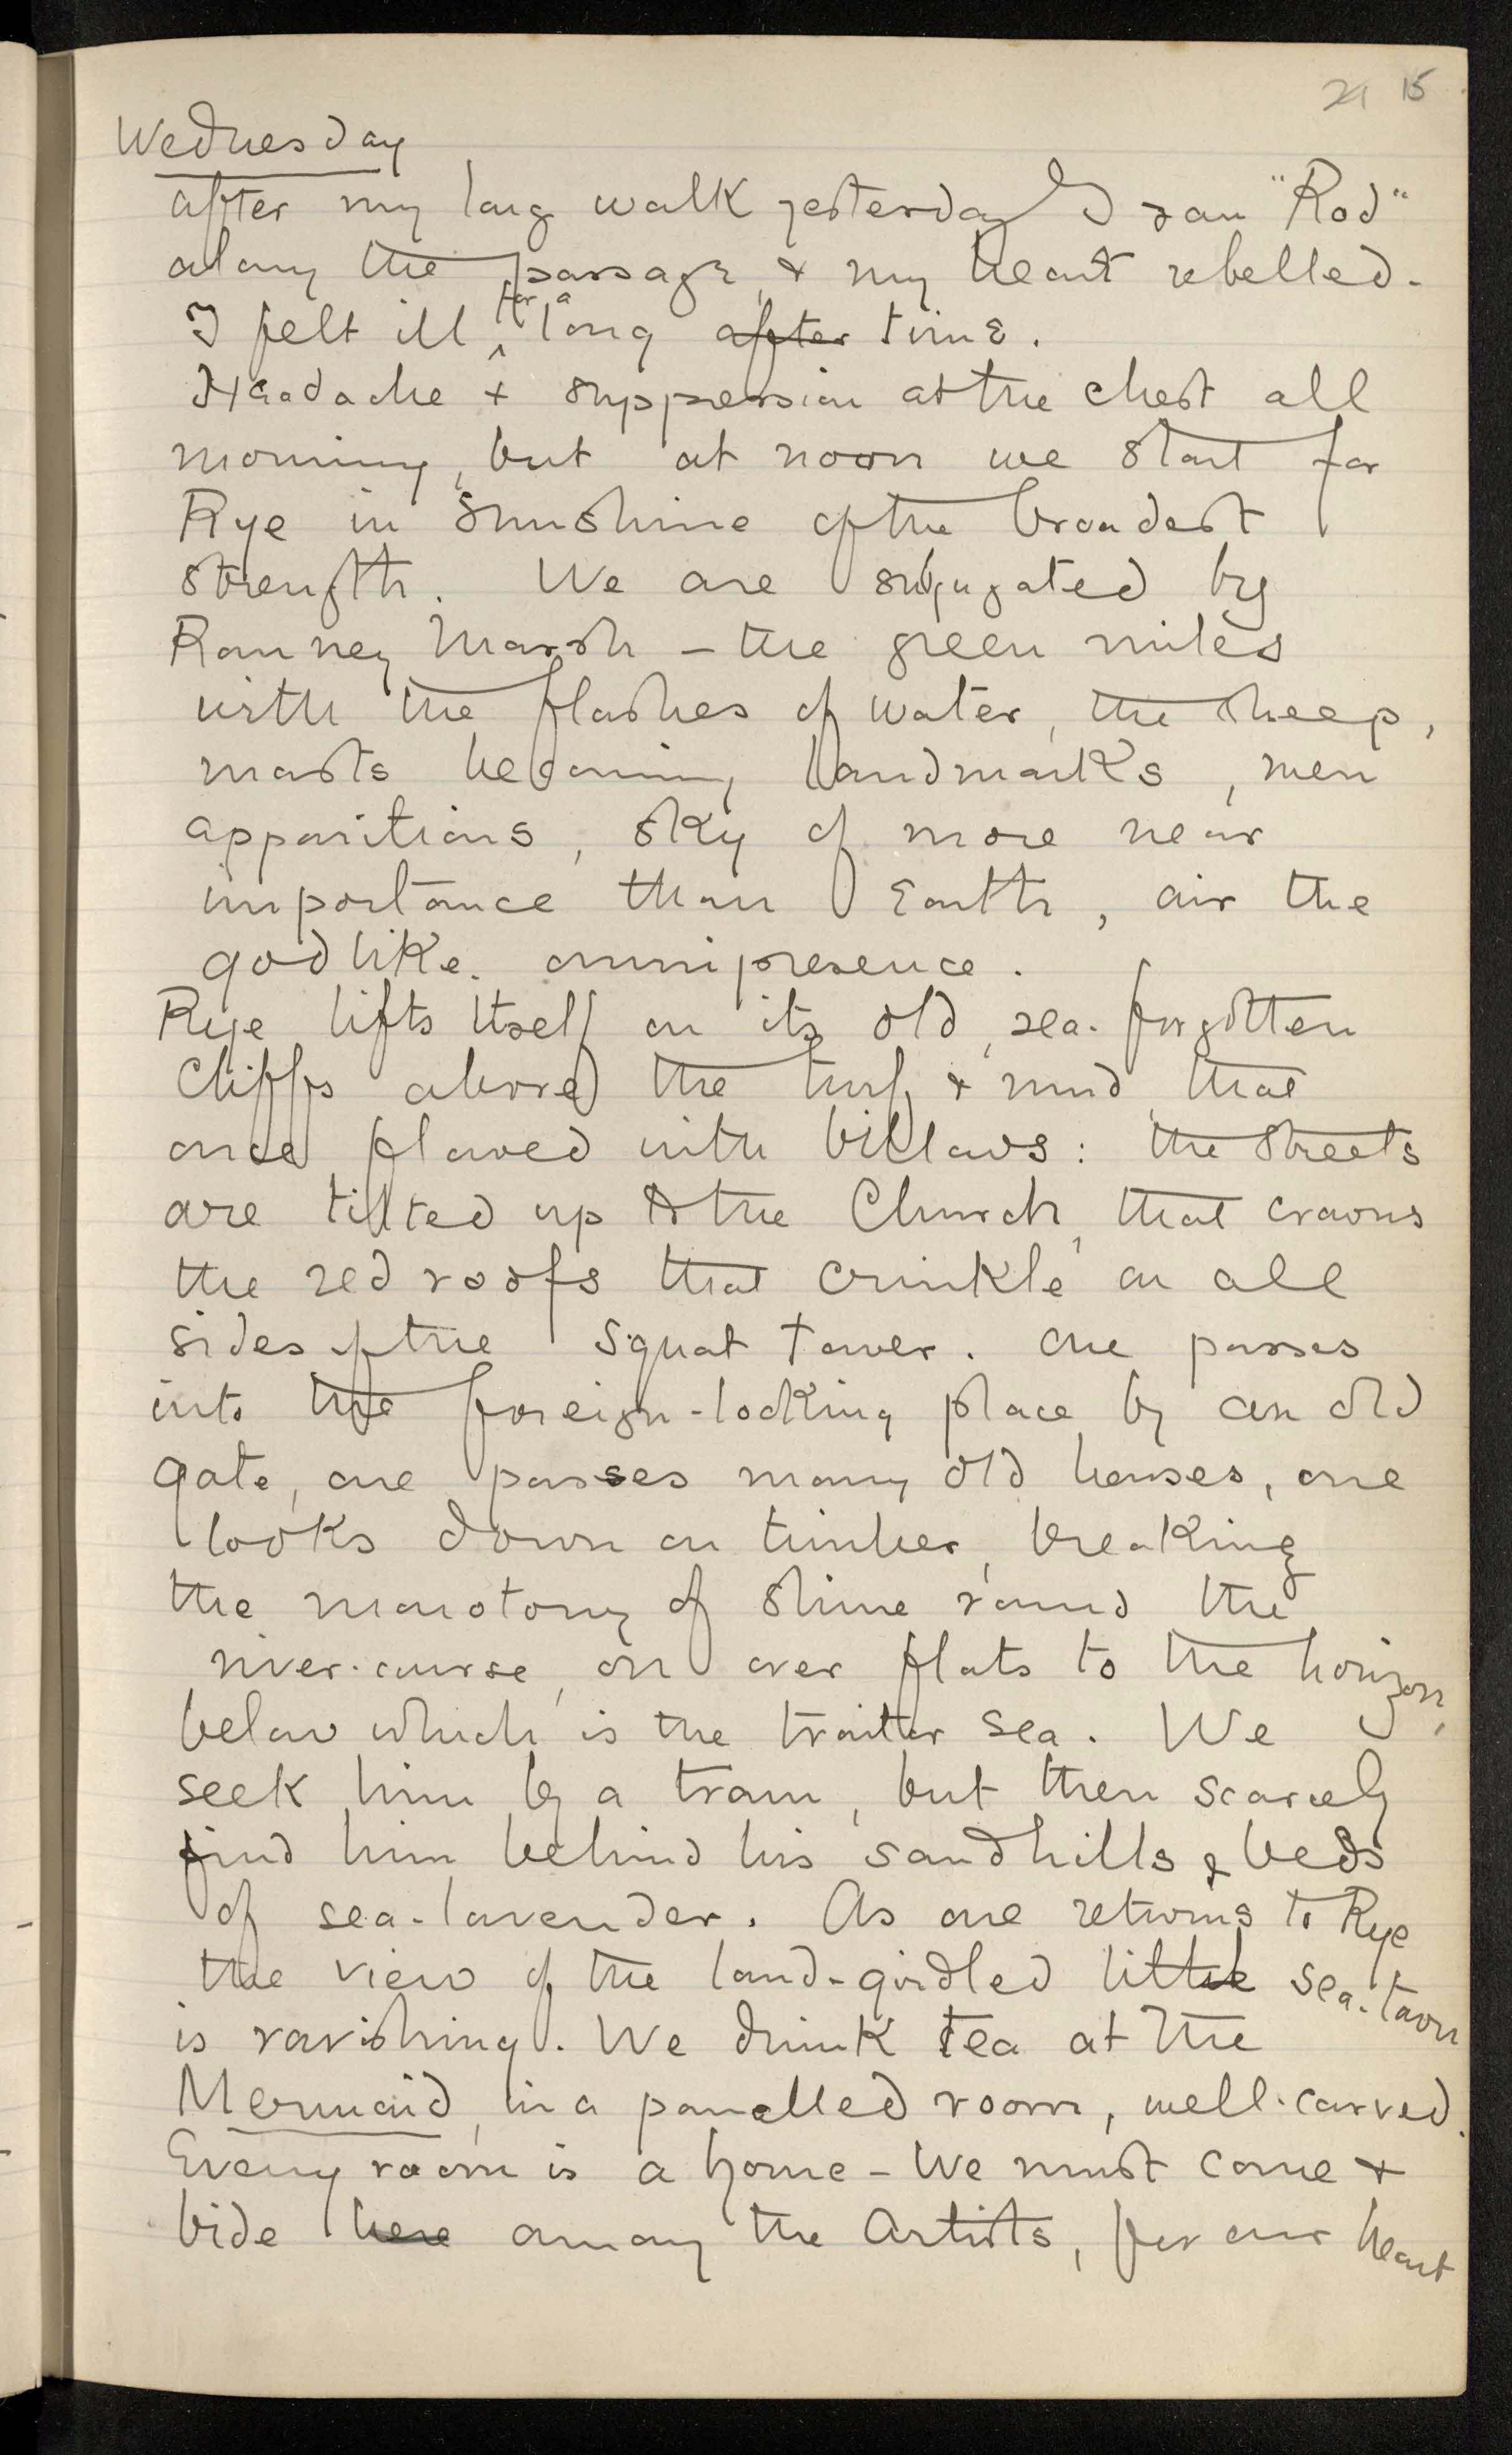 21 15
Wednesday
after my long walk yesterday I ran "Rod"
along the passage, & my heart rebelled.
I felt ill, for a long after time.
Headache & suppression at the chest all
morning, but at noon we start for
Rye in sunshine of the broadest
strength. We are subjugated by
Romney Marsh – the green miles
with the flashes of water, the sheep,
masts becoming landmarks, men
apparitions, sky of more near
importance than Earth, air the
godlike omnipresence.
Rye lifts itself on its old, sea-forgotten
Cliffs above the turf & mud that
once flowed with billows: the streets
are tilted up to the Church, that crowns
the red roofs that crinkle on all
sides of the squat tower. One passes
into the foreign-looking place by an old
gate, one passes many old houses, one
looks down on timber, breaking
the monotony of shine round the
river-course, on over flats to the horizon,
below which is the traitor sea. We
seek him by a tram, but then scarcely
find him behind his sandhills & beds
of sea-lavender. As one returns to Rye
the view of the land-girdled little sea-town
is ravishing. We drink tea at the
Mermaid, in a panelled room, well-carved.
Every room is a home – We must come &
bide here among the Artists, for our heart